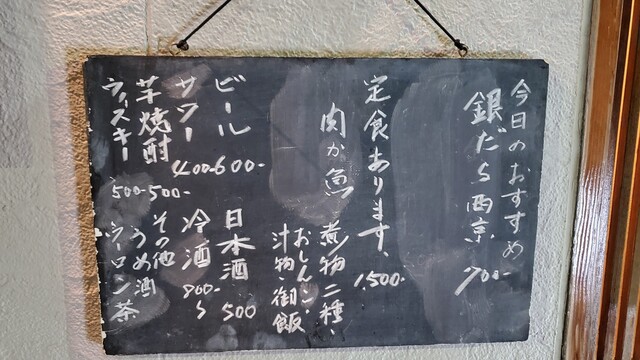 今日のおすすめ
銀だら西京 700-
定食あります、1500-
肉か魚 煮物二種、
おしんこ、
汁物・御飯
ビール 600-
サワー 400-
芋焼酎 500-
ウィスキー 500-
日本酒 500
冷酒 800-〜
その他
うめ酒
ウーロン茶